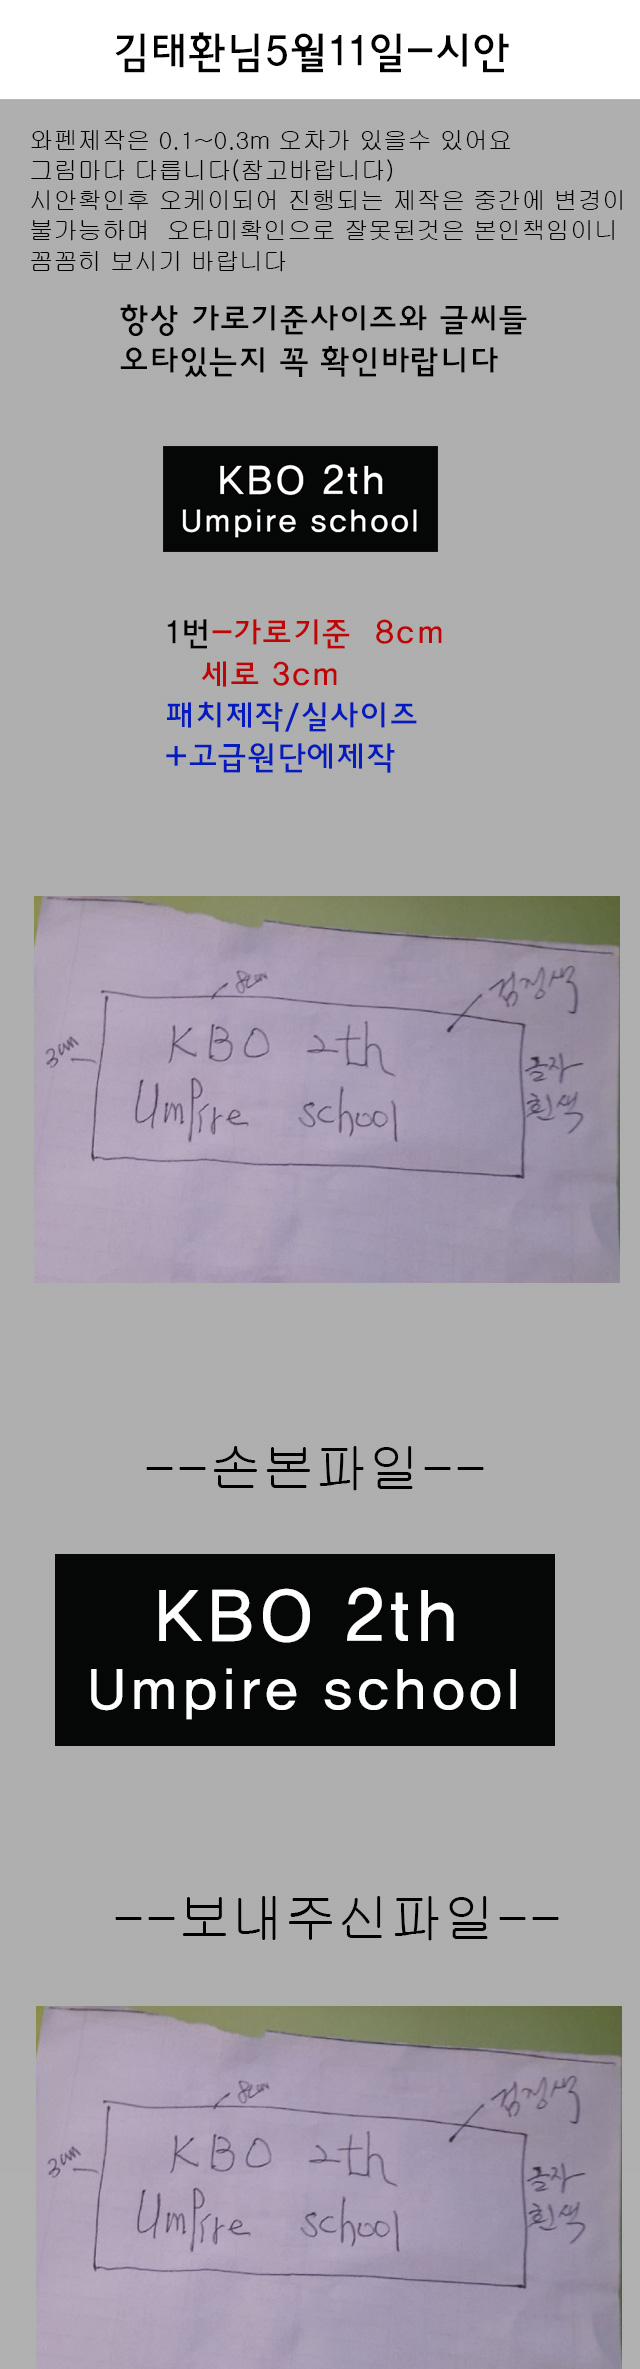 김태환님5월11일-시안
와펜제작은 0.1~0.3m 오차가 있을수 있어요
그림마다 다릅니다(참고바랍니다)
시안확인후 오케이되어 진행되는 제작은 중간에 변경이
불가능하며 오타미확인으로 잘못된것은 본인책임이니
꼼꼼히 보시기 바랍니다
항상 가로기준사이즈와 글씨들
오타있는지 꼭 확인바랍니다
KBO 2th
Umpire school
1번-가로기준 8cm
세로 3cm
패치제작/실사이즈
+고급원단에제작
8cm
검정색
3cm
KBO 2th
글자
Umpire school
흰색
--손본파일--
KBO 2th
Umpire school
--보내주신파일--
8cm
검정색
3cm
KBO 2th
글자
Umpire school
흰색